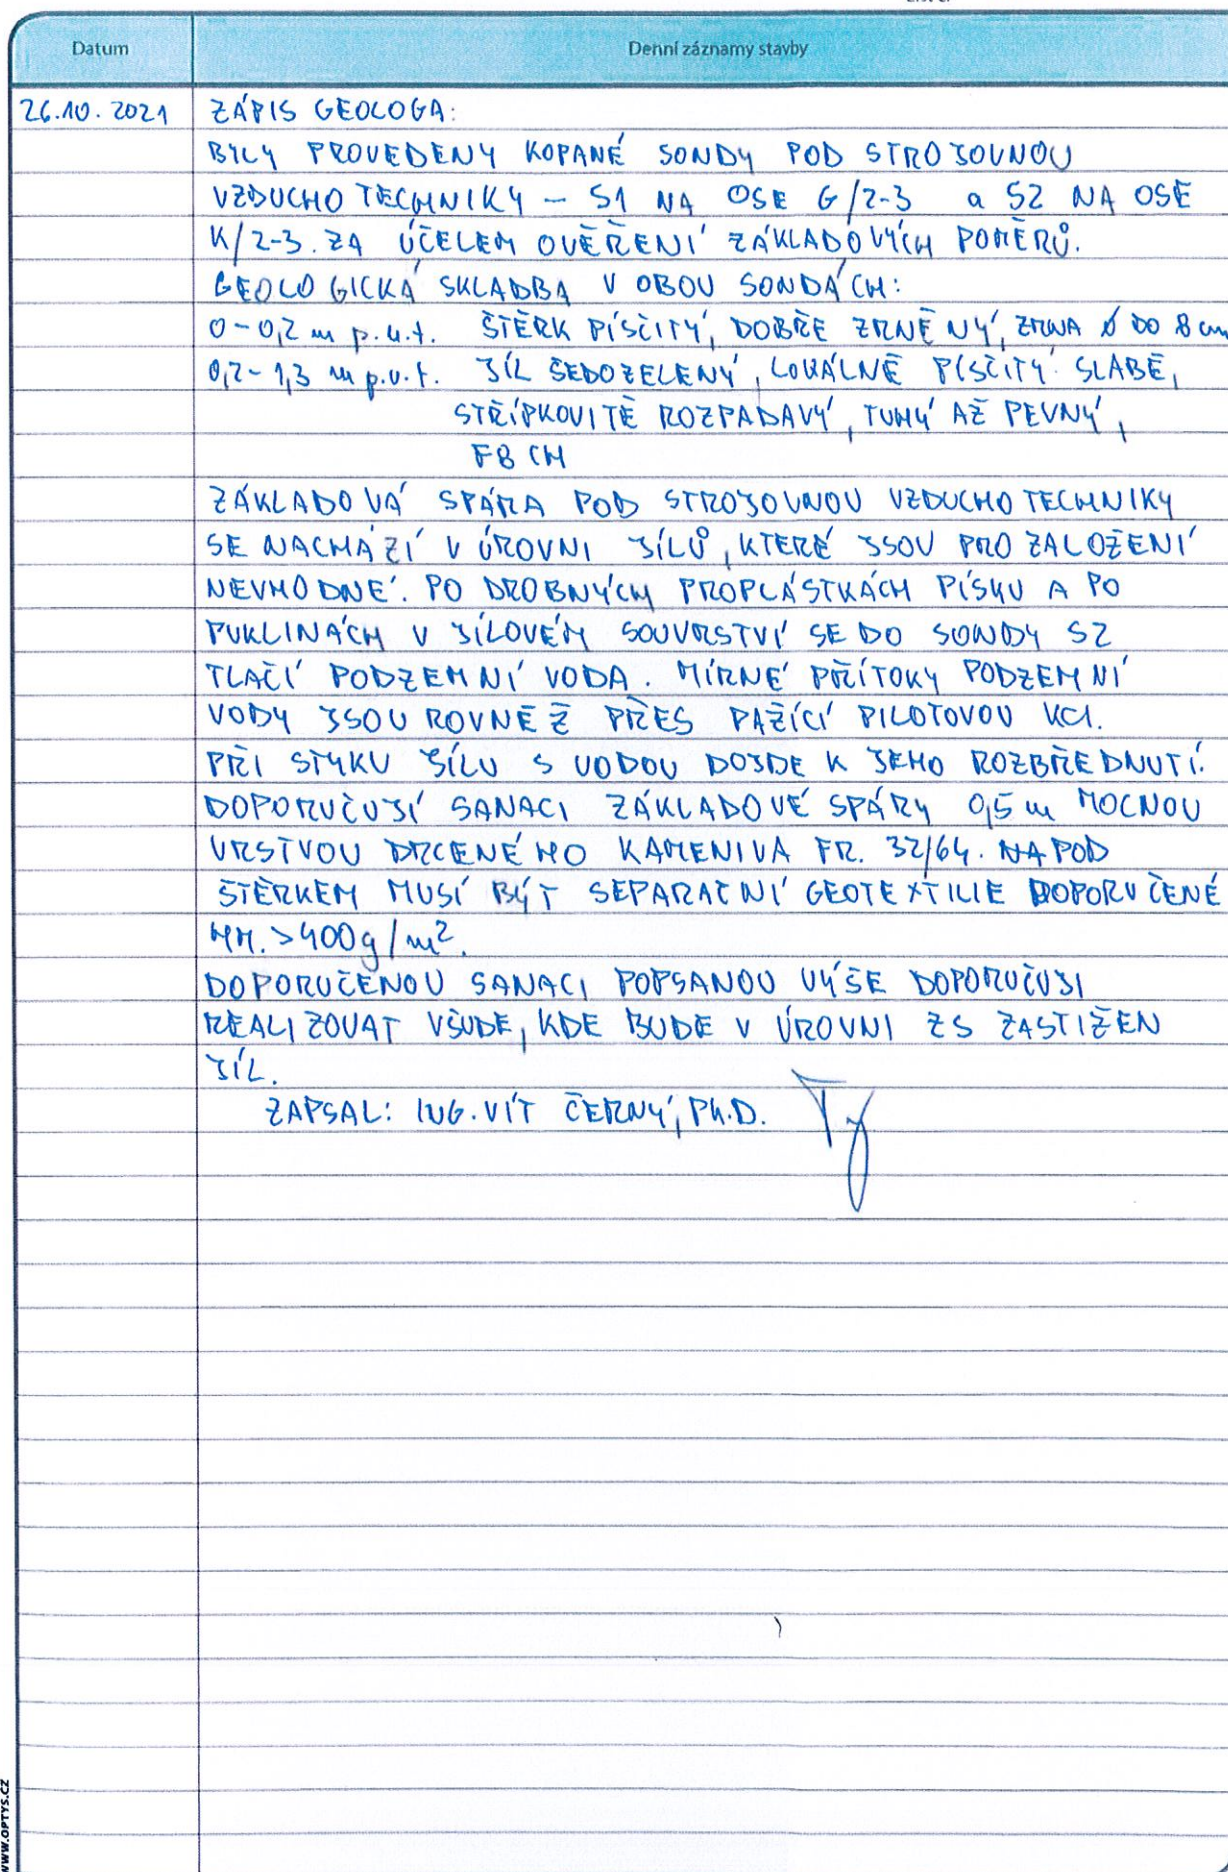 Datum
Denní záznamy stavby
26.10.2021 ZÁPIS GEOLOGA:
BYLY PROVEDENY KOPANÉ SONDY POD STROJOVNOU
VZDUCHOTECHNIKY - S1 NA OSE G/2-3 a S2 NA OSE
K/2-3. ZA ÚČELEM OVĚŘENÍ ZÁKLADOVÝCH POMĚRŮ.
GEOLOGICKÁ SKLADBA V OBOU SONDÁCH:
0-0,2 m p.ú.t. ŠTĚRK PÍSČITÝ, DOBŘE ZRNĚNÝ, ZRNA Ø DO 8 cm
0,2-1,3 m p.ú.t. JÍL ŠEDOZELENÝ, LOKÁLNĚ PÍSČITÝ SLABĚ,
STŘÍPKOVITĚ ROZPADAVÝ, TUHÝ AŽ PEVNÝ,
F8 CH
ZÁKLADOVÁ SPÁRA POD STROJOVNOU VZDUCHOTECHNIKY
SE NACHÁZÍ V ÚROVNI JÍLŮ, KTERÉ JSOU PRO ZALOŽENÍ
NEVHODNÉ. PO DROBNÝCH PROPLÁSTKÁCH PÍSKU A PO
PUKLINÁCH V JÍLOVÉM SOUVRSTVÍ SE DO SONDY S2
TLAČÍ PODZEMNÍ VODA. MÍRNÉ PŘÍTOKY PODZEMNÍ
VODY JSOU ROVNĚŽ PŘES PAŽÍCÍ PILOTOVOU KCI.
PŘI STYKU JÍLU S VODOU DOJDE K JEHO ROZBŘEDNUTÍ.
DOPORUČUJI SANACI ZÁKLADOVÉ SPÁRY 0,5 m MOCNOU
VRSTVOU DRCENÉHO KAMENIVA FR. 32/64. POD
ŠTĚRKEM MUSÍ BÝT SEPARAČNÍ GEOTEXTILIE DOPORUČENÉ
HM. >400g/m².
DOPORUČENOU SANACI POPSANOU VÝŠE DOPORUČUJI
REALIZOVAT VŠUDE, KDE BUDE V ÚROVNI ZS ZASTIŽEN
JÍL.
ZAPSAL: ING. VÍT ČERNÝ, Ph.D.
WWW.OPTYS.CZ